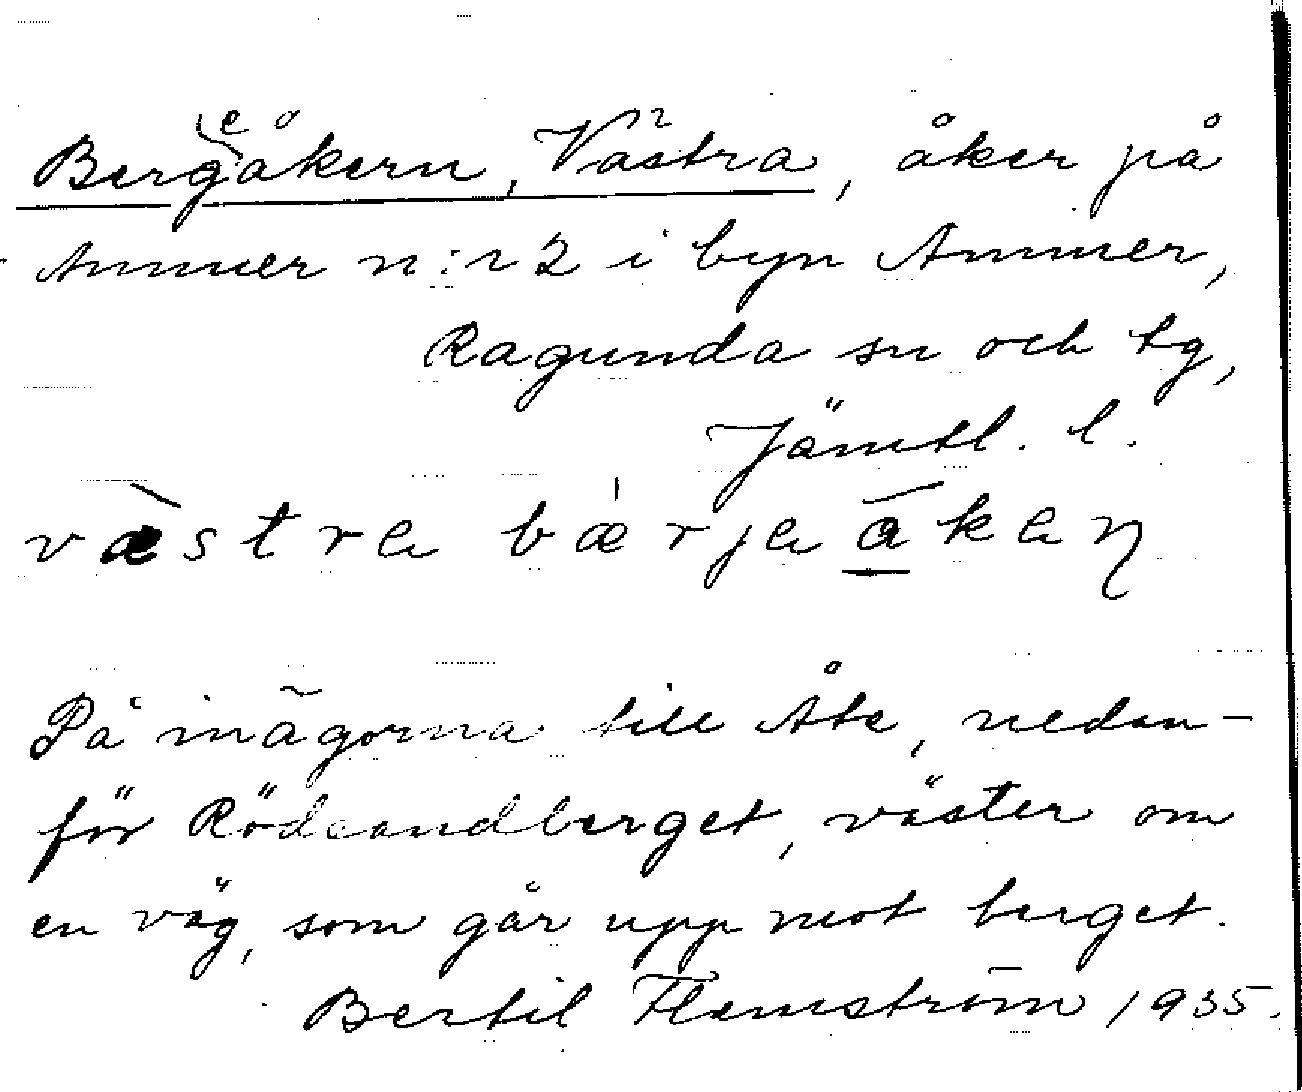 Bergeåkern, Västra, åker på
Ammer n:r 2 i byn Ammer,
Ragunda sn och tg,
Jämtl. l.
væ̀stra bæ'rjaåkaɳ
På inägorna till Åte, nedan-
för Rödsandberget, väster om
en väg, som går upp mot berget.
Bertil Flemström 1935.